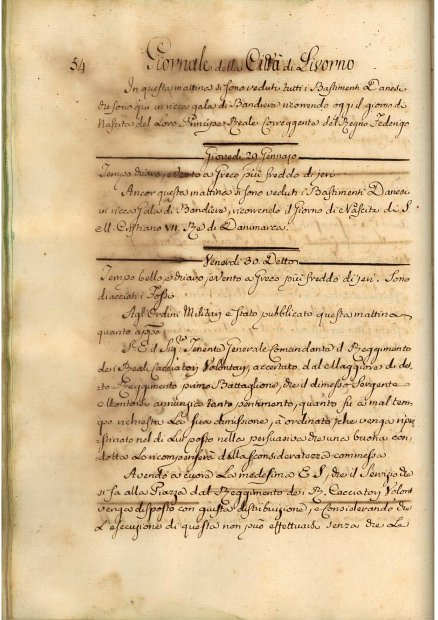 54 Giornale della Città di Livorno
In questa mattina si sono veduti tutti i Bastimenti Danesi
che sono qui in ricca gala di Bandiera ricorrendo oggi il giorno di
Nascita del Loro Principe Reale Correggente del Regno Federigo
Giovedì 29 Gennajo
Tempo chiaro, e Vento a Greco più freddo di jeri
Ancor questa mattina si sono veduti i Bastimenti Danesi
in ricca Gala di Bandiera, ricorrendo il Giorno di Nascita di S.
M. Cristiano VII. Re di Danimarca.
Venerdì 30. Detto
Tempo bello, e chiaro, e Vento a Greco più freddo di jeri. Sono
diacciati i Fossi
Agl' Ordini Militari è stato pubblicato questa mattina
quanto app.o
S. E. il Sig.re Tenente Generale Comandante il Reggimento
de i Reali Cacciatori Volontarj, accertato dal Maggiore di de:
to Reggimento primo Battaglione, che il dimesso Sergente
Montoni annunzia tanto pentimento, quanto fu a mal tem:
po richiesta La sua dimissione, à ordinato, che venga ripri:
stinato nel di Lui posto nella persuasiva che una buona con:
dotta La ricompenserà della sconsideratezza commessa
Avendo a cuore La medesima E. S., che il Servizio che
si fa alla Piazza dal Reggimento de i R. Cacciatori Volont.
venga disposto con giusta distribuzione, e considerando che
L'esecuzione di questa non può effettuarsi senza che Le